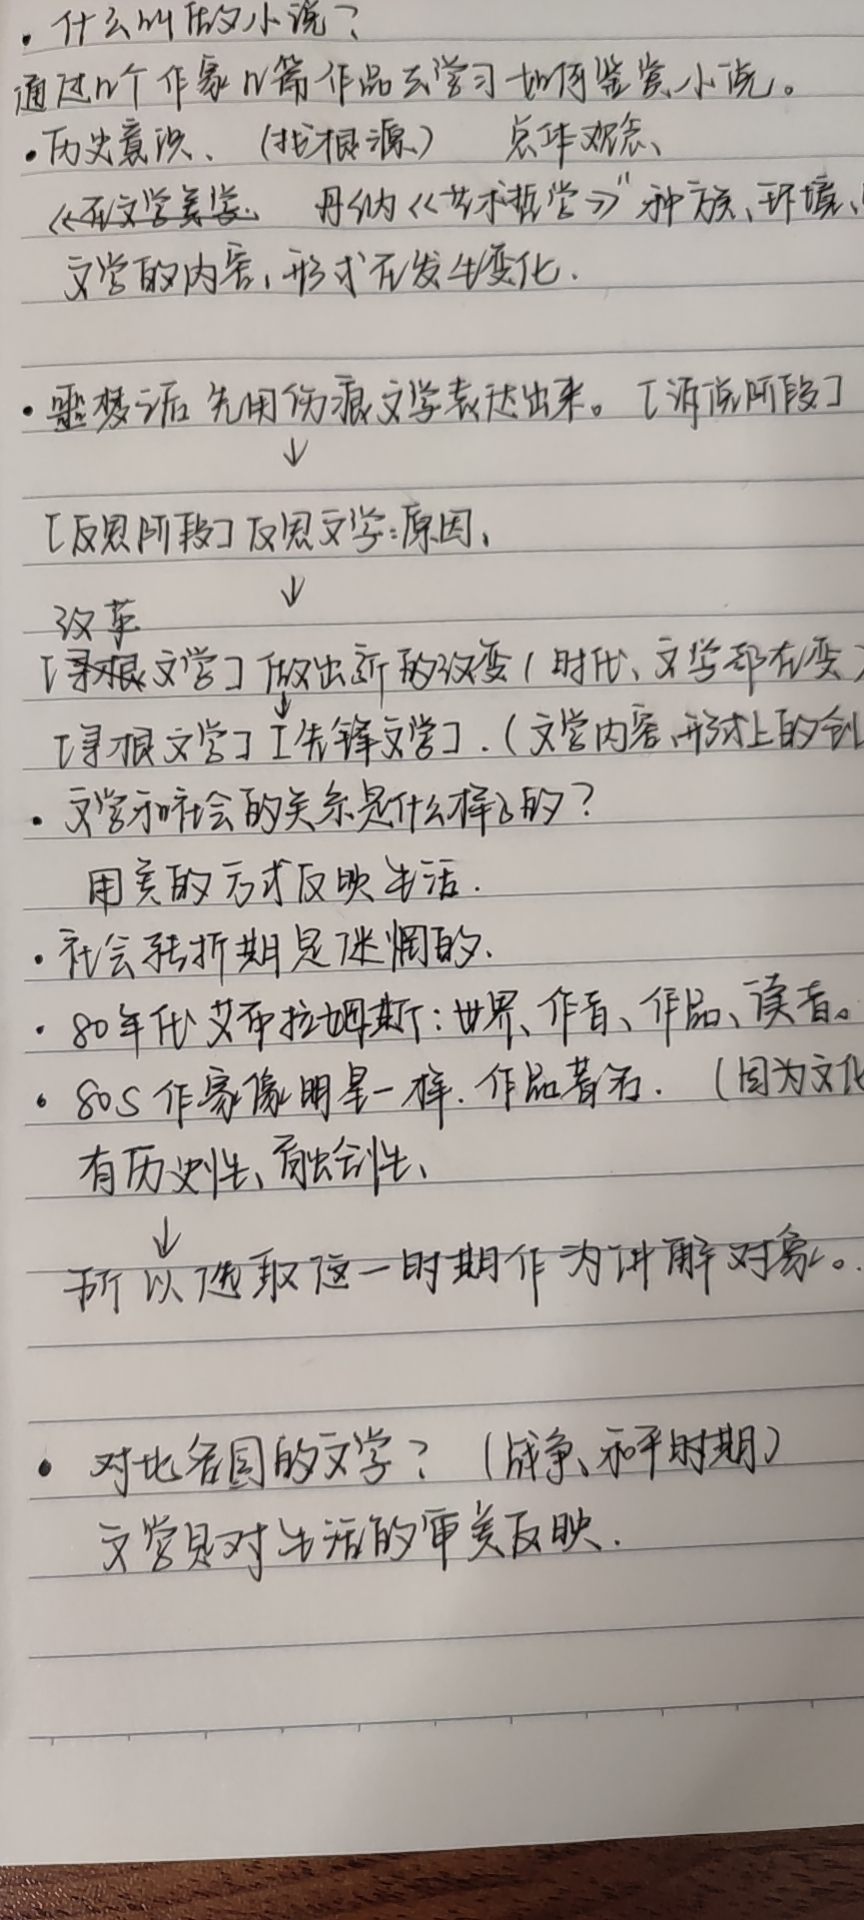 · 什么叫做小说？
通过n个作家n篇作品去学习如何鉴赏小说。
· 历史意识、（找根源） 总体观念、
丹纳《艺术哲学》"种族、环境、
文学的内容，形式在发生变化.
· 噩梦之后 先用伤痕文学表达出来。【诉说阶段】
↓
【反思阶段】反思文学：原因，
↓
改革
【寻根文学】做出新的改变（时代、文学都在变）
↓
【寻根文学】【先锋文学】.（文学内容、形式上的创
· 文学和社会的关系是什么样的？
用美的方式反映生活.
· 社会转折期是迷惘的.
· 80年代 艾布拉姆斯：世界、作者、作品、读者。
· 80s 作家像明星一样. 作品著名. （因为文化
有历史性、融创性、
↓
所以选取这一时期作为讲解对象。
· 对比各国的文学？（战争、和平时期）
文学是对生活的审美反映.